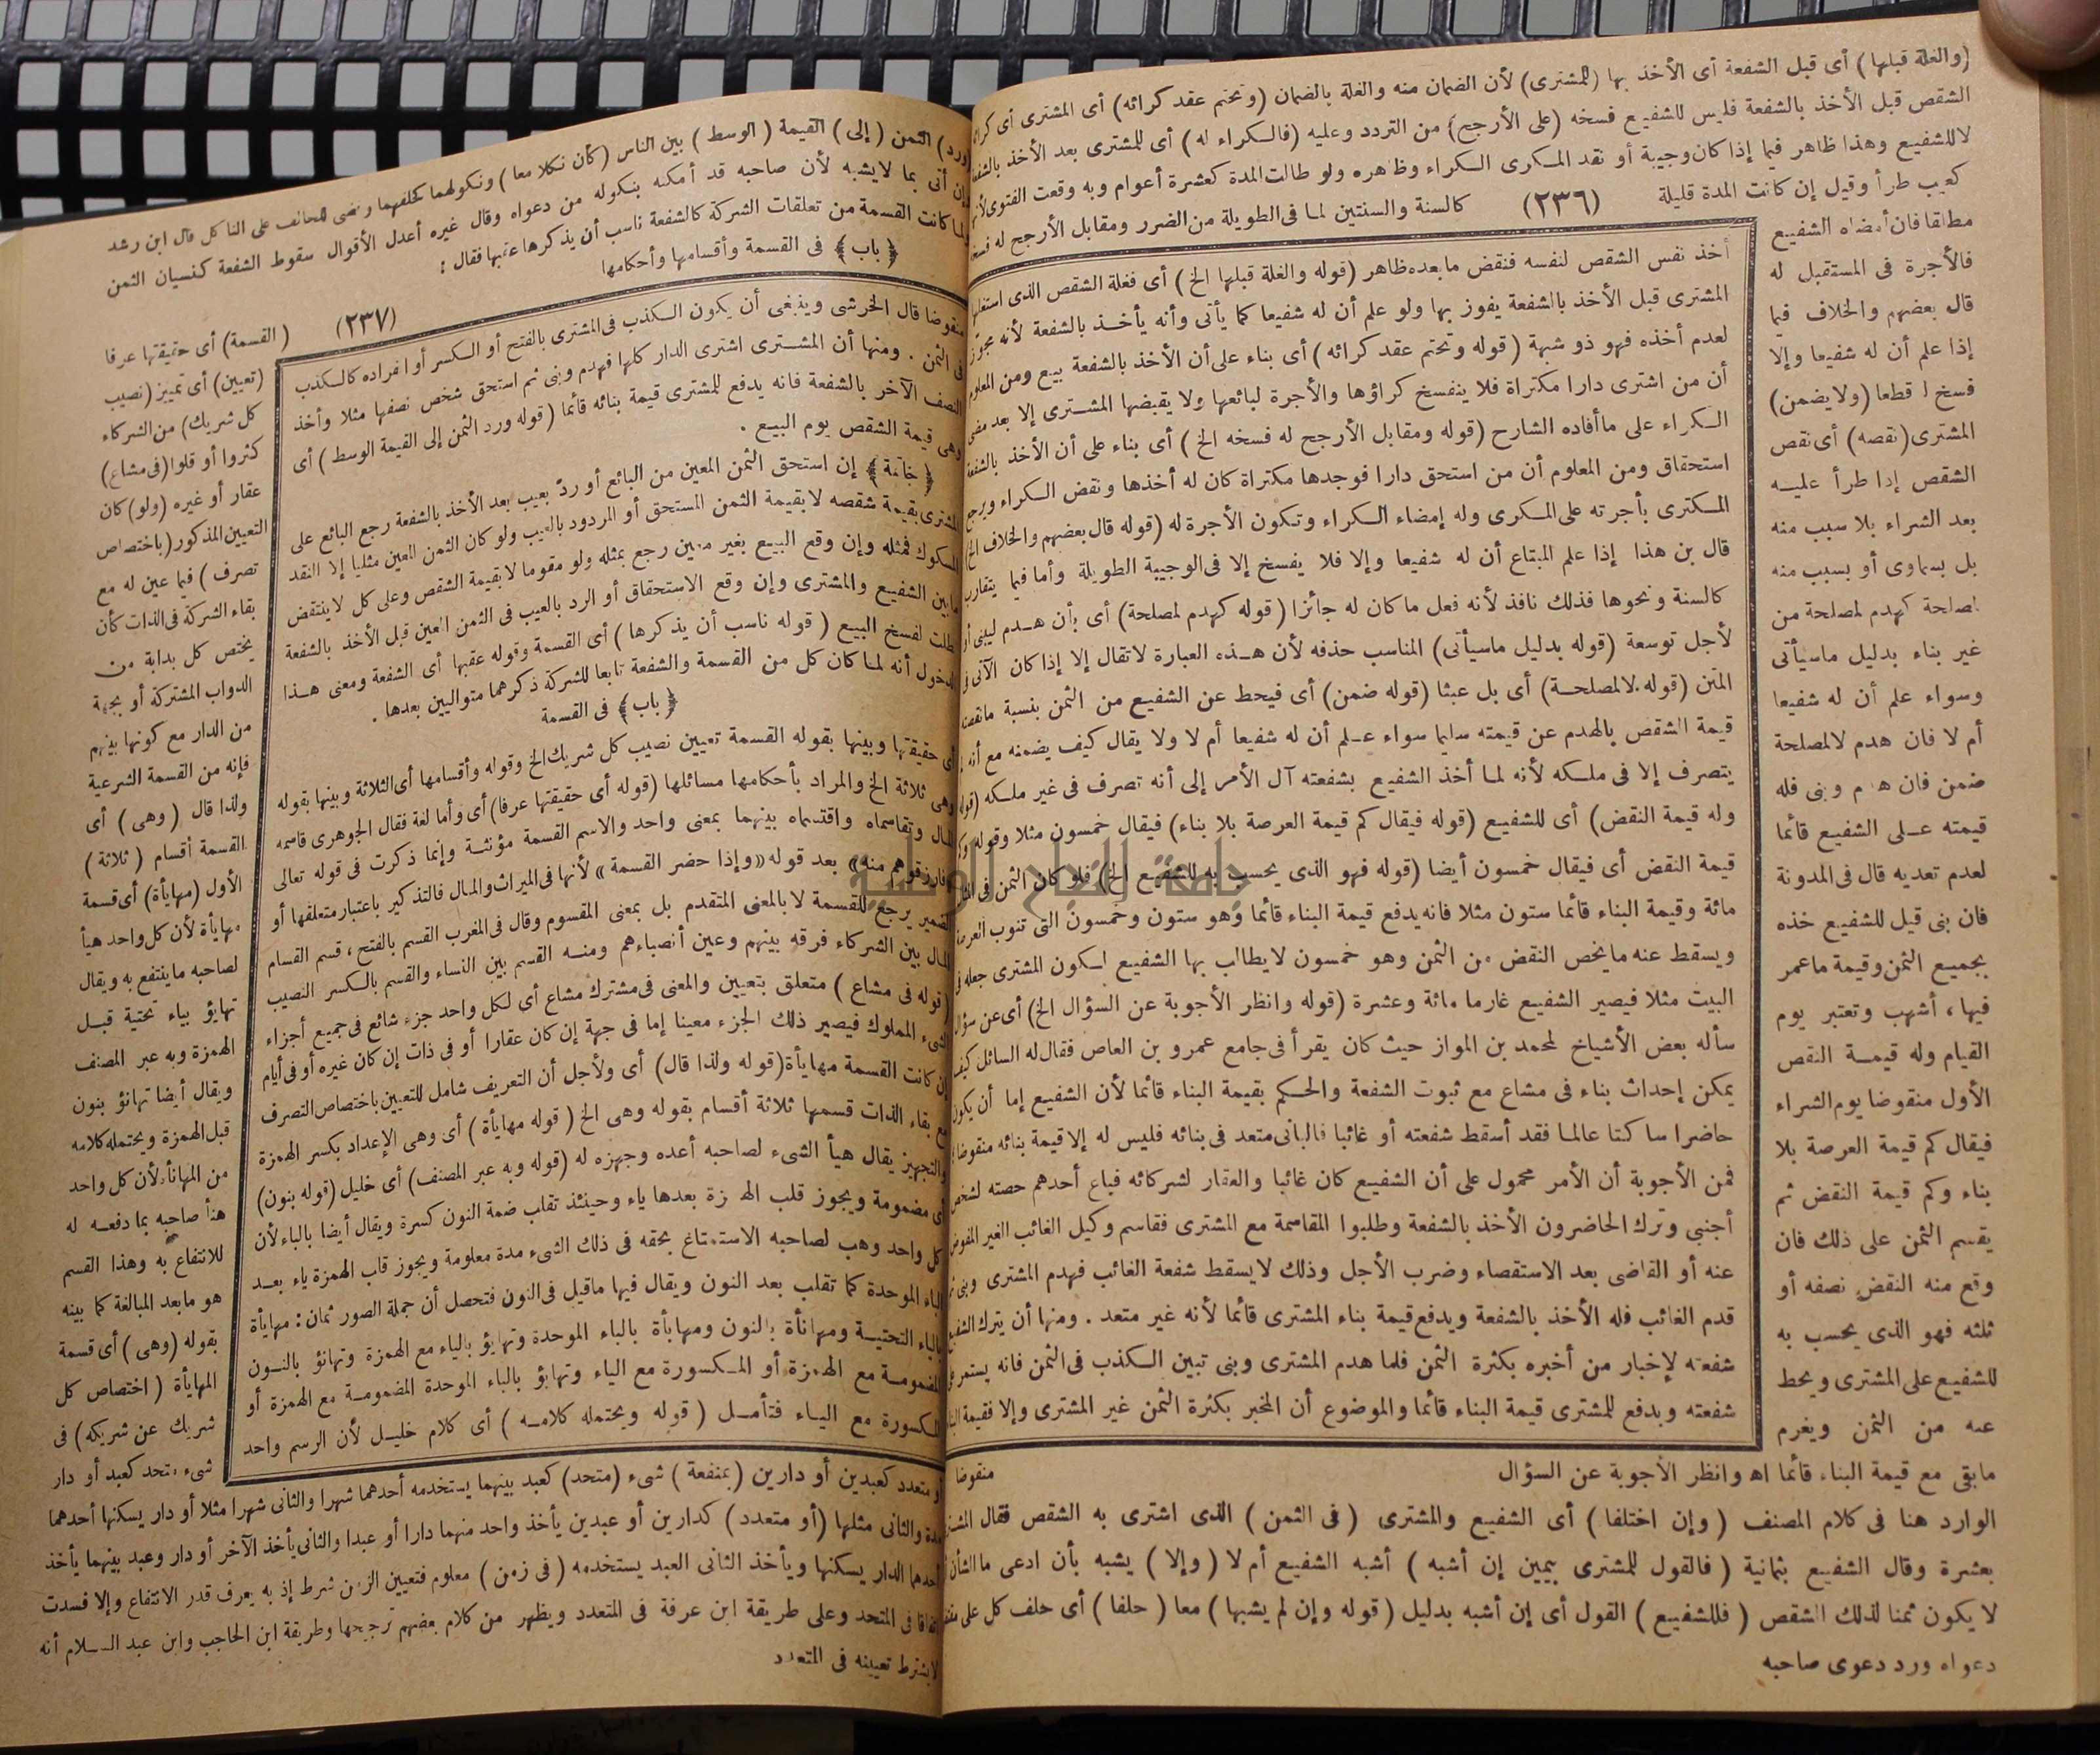 (والغلة قبلها) أى قبل الشفعة أى الأخذ بها (للمشترى) لأن الضمان منه والغلة بالضمان (وتحتم عقد كرائه) أى المشترى أى كراء
الشقص قبل الأخذ بالشفعة فليس للشفيع فسخه (على الأرجح) من التردد وعليه (فالكراء له) أى للمشترى بعد الأخذ بالشفعة
لا للشفيع وهذا ظاهر فيما إذا كان وجيبة أو نقد المكرى الكراء وظاهره ولو طالت المدة كعشرة أعوام وبه وقعت الفتوى
كعيب طرأ وقيل إن كانت المدة قليلة (٢٣٦) كالسنة والسنتين لما فى الطويلة من الضرر ومقابل الأرجح له فسخه
مطلقا فان أمضاه الشفيع
فالأجرة فى المستقبل له
قال بعضهم والخلاف فيما
إذا علم أن له شفيعا وإلا
فسخ قطعا (ولا يضمن)
المشترى (نقصه) أى نقص
الشقص إذا طرأ عليه
بعد الشراء بلا سبب منه
بل بسماوى أو بسبب منه
لمصلحة كهدم لمصلحة من
غير بناء بدليل ماسيأتى
وسواء علم أن له شفيعا
أم لا فان هدم لالمصلحة
ضمن فان هدم وبنى فله
قيمته على الشفيع قائما
لعدم تعديه قال فى المدونة
فان بنى قيل للشفيع خذه
بجميع الثمن وقيمة ماعمر
فيها، أشهب وتعتبر يوم
القيام وله قيمة النقص
الأول منقوضا يوم الشراء
فيقال كم قيمة العرصة بلا
بناء وكم قيمة النقض ثم
يقسم الثمن على ذلك فان
وقع منه النقض نصفه أو
ثلثه فهو الذى يحسب به
للشفيع على المشترى ويحط
عنه من الثمن ويغرم
مابقى مع قيمة البناء قائما اه وانظر الأجوبة عن السؤال
الوارد هنا فى كلام المصنف (وإن اختلفا) أى الشفيع والمشترى (فى الثمن) الذى اشترى به الشقص فقال
بعشرة وقال الشفيع بثمانية (فالقول للمشترى بيمين إن أشبه) أشبه الشفيع أم لا (وإلا) يشبه بأن ادعى ما الشأن
لا يكون ثمنا لذلك الشقص (فللشفيع) القول أى إن أشبه بدليل (قوله وإن لم يشبها) معا (حلفا) أى حلف كل على
دعواه ورد دعوى صاحبه
أخذ نفس الشقص لنفسه فنقض مابعده ظاهر (قوله والغلة قبلها الخ) أى فغلة الشقص الذى استغلها
المشترى قبل الأخذ بالشفعة يفوز بها ولو علم أن له شفيعا كما يأتى وأنه يأخذ بالشفعة لأنه مجوّز
لعدم أخذه فهو ذو شبهة (قوله وتحتم عقد كرائه) أى بناء على أن الأخذ بالشفعة بيع ومن المعلوم
أن من اشترى دارا مكتراة فلا ينفسخ كراؤها والأجرة لبائعها ولا يقبضها المشترى إلا بعد مضى
الكراء على ما أفاده الشارح (قوله ومقابل الأرجح له فسخه الخ) أى بناء على أن الأخذ بالشفعة
استحقاق ومن المعلوم أن من استحق دارا فوجدها مكتراة كان له أخذها ونقض الكراء ويرجع
المكترى بأجرته على المكرى وله إمضاء الكراء وتكون الأجرة له (قوله قال بعضهم والخلاف الخ)
قال بن هذا إذا علم المبتاع أن له شفيعا وإلا فلا يفسخ إلا فى الوجيبة الطويلة وأما فيما يتقارب
كالسنة ونحوها فذلك نافذ لأنه فعل ما كان له جائزا (قوله كهدم لمصلحة) أى بأن هدم ليبنى أو
لأجل توسعة (قوله بدليل ماسيأتى) المناسب حذفه لأن هذه العبارة لاتقال إلا إذا كان الآتى فى
المتن (قوله لالمصلحة) أى بل عبثا (قوله ضمن) أى فيحط عن الشفيع من الثمن بنسبة مانقصت
قيمة الشقص بالهدم عن قيمته سليما سواء علم أن له شفيعا أم لا ولا يقال كيف يضمنه مع أنه
يتصرف إلا فى ملكه لأنه لما أخذ الشفيع بشفعته آل الأمر إلى أنه تصرف فى غير ملكه (قوله
وله قيمة النقض) أى للشفيع (قوله فيقال كم قيمة العرصة بلا بناء) فيقال خمسون مثلا وقوله وكم
قيمة النقض أى فيقال خمسون أيضا (قوله فهو الذى يحسب به للشفيع الخ) فلو كان الثمن فى
مائة وقيمة البناء قائما ستون مثلا فانه يدفع قيمة البناء قائما وهو ستون وخمسون التى تنوب العرصة
ويسقط عنه مايخص النقض من الثمن وهو خمسون لايطالب بها الشفيع لكون المشترى جعله فى
البيت مثلا فيصير الشفيع غارما مائة وعشرة (قوله وانظر الأجوبة عن السؤال الخ) أى عن سؤال
سأله بعض الأشياخ لمحمد بن المواز حيث كان يقرأ فى جامع عمرو بن العاص فقال له السائل كيف
يمكن إحداث بناء فى مشاع مع ثبوت الشفعة والحكم بقيمة البناء قائما لأن الشفيع إما أن يكون
حاضرا ساكتا عالما فقد أسقط شفعته أو غائبا فالبانى متعد فى بنائه فليس له إلا قيمة بنائه منقوضا
فمن الأجوبة أن الأمر محمول على أن الشفيع كان غائبا والعقار لشركائه فباع أحدهم حصته لشخص
أجنبى وترك الحاضرون الأخذ بالشفعة وطلبوا المقاسمة مع المشترى فقاسم وكيل الغائب الغير المفوض
عنه أو القاضى بعد الاستقصاء وضرب الأجل وذلك لايسقط شفعة الغائب فهدم المشترى وبنى ثم
قدم الغائب فله الأخذ بالشفعة ويدفع قيمة بناء المشترى قائما لأنه غير متعد . ومنها أن يترك الشفيع
شفعته لإخبار من أخبره بكثرة الثمن فلما هدم المشترى وبنى تبين الكذب فى الثمن فانه يستمر على
شفعته ويدفع للمشترى قيمة البناء قائما والموضوع أن المخبر بكثرة الثمن غير المشترى وإلا فقيمة البناء
منقوضا
(ورد) الثمن (إلى) القيمة (الوسط) بين الناس (كأن نكلا معا) ونكولهما كحلفهما وقضى للحالف على الناكل قال ابن رشد
وإن أتى بما لايشبه لأن صاحبه قد أمكنه بنكوله من دعواه وقال غيره أعدل الأقوال سقوط الشفعة كنسيان الثمن
ولما كانت القسمة من تعلقات الشركة كالشفعة ناسب أن يذكرها عقبها فقال :
﴿باب﴾ فى القسمة وأقسامها وأحكامها
(٢٣٧)
(القسمة) أى حقيقتها عرفا
(تعيين) أى تمييز (نصيب
كل شريك) من الشركاء
كثروا أو قلوا (فى مشاع)
عقار أو غيره (ولو) كان
التعيين المذكور (باختصاص
تصرف) فيما عين له مع
بقاء الشركة فى الذات كأن
يختص كل بدابة من
الدواب المشتركة أو بجهة
من الدار مع كونها بينهم
فإنه من القسمة الشرعية
ولذا قال (وهى) أى
القسمة أقسام (ثلاثة)
الأول (مهايأة) أى قسمة
مهايأة لأن كل واحد هيأ
لصاحبه ماينتفع به ويقال
تهايؤ بياء تحتية قبل
الهمزة وبه عبر المصنف
ويقال أيضا تهانؤ بنون
قبل الهمزة ويحتمله كلامه
من المهانأة لأن كل واحد
هنأ صاحبه بما دفعه له
للانتفاع به وهذا القسم
هو مابعد المبالغة كما بينه
بقوله (وهى) أى قسمة
المهايأة (اختصاص كل
شريك عن شريكه) فى
شىء متحد كعبد أو دار
أو متعدد كعبدين أو دارين (بمنفعة) شىء (متحد) كعبد بينهما يستخدمه أحدهما شهرا والثانى شهرا مثلا أو دار يسكنها أحدهما
مدة والثانى مثلها (أو متعدد) كدارين أو عبدين يأخذ واحد منهما دارا أو عبدا والثانى يأخذ الآخر أو دار وعبد بينهما يأخذ
أحدهما الدار يسكنها ويأخذ الثانى العبد يستخدمه (فى زمن) معلوم فتعيين الزمن شرط إذ به يعرف قدر الانتفاع وإلا فسدت
اتفاقا فى المتحد وعلى طريقة ابن عرفة فى المتعدد ويظهر من كلام بعضهم ترجيحها وطريقة ابن الحاجب وابن عبد السلام أنه
لايشترط تعيينه فى المتعدد
منقوضا قال الخرشى وينبغى أن يكون الكذب فى المشترى بالفتح أو الكسر أو انفراده كالكذب
فى الثمن . ومنها أن المشترى اشترى الدار كلها فهدم وبنى ثم استحق شخص نصفها مثلا وأخذ
النصف الآخر بالشفعة فانه يدفع للمشترى قيمة بنائه قائما (قوله ورد الثمن إلى القيمة الوسط) أى
وهى قيمة الشقص يوم البيع .
﴿خاتمة﴾ إن استحق الثمن المعين من البائع أو ردّ بعيب بعد الأخذ بالشفعة رجع البائع على
المشترى بقيمة شقصه لا بقيمة الثمن المستحق أو المردود بالعيب ولو كان الثمن المعين مثليا إلا النقد
المسكوك فمثله وإن وقع البيع بغير معين رجع بمثله ولو مقوما لا بقيمة الشقص وعلى كل لاينتقض
مابين الشفيع والمشترى وإن وقع الاستحقاق أو الرد بالعيب فى الثمن المعين قبل الأخذ بالشفعة
بطلت لفسخ البيع (قوله ناسب أن يذكرها) أى القسمة وقوله عقبها أى الشفعة ومعنى هذا
الدخول أنه لما كان كل من القسمة والشفعة تابعا للشركة ذكرهما متواليين بعدها .
﴿باب﴾ فى القسمة
أى حقيقتها وبينها بقوله القسمة تعيين نصيب كل شريك الخ وقوله وأقسامها أى الثلاثة وبينها بقوله
وهى ثلاثة الخ والمراد بأحكامها مسائلها (قوله أى حقيقتها عرفا) أى وأما لغة فقال الجوهرى قاسمه
المال وتقاسماه واقتسماه بينهما بمعنى واحد والاسم القسمة مؤنثة وإنما ذكرت فى قوله تعالى
«فارزقوهم منه» بعد قوله «وإذا حضر القسمة» لأنها فى الميراث والمال فالتذكير باعتبار متعلقها أو
الضمير يرجع للقسمة لا بالمعنى المتقدم بل بمعنى المقسوم وقال فى المغرب القسم بالفتح، قسم القسام
المال بين الشركاء فرقه بينهم وعين أنصباءهم ومنه القسم بين النساء والقسم بالكسر النصيب
(قوله فى مشاع) متعلق بتعيين والمعنى فى مشترك مشاع أى لكل واحد جزء شائع فى جميع أجزاء
الشىء المملوك فيصير ذلك الجزء معينا إما فى جهة إن كان عقارا أو فى ذات إن كان غيره أو فى أيام
إن كانت القسمة مهايأة (قوله ولذا قال) أى ولأجل أن التعريف شامل للتعيين باختصاص التصرف
مع بقاء الذات قسمها ثلاثة أقسام بقوله وهى الخ (قوله مهايأة) أى وهى الإعداد بكسر الهمزة
والتجهيز يقال هيأ الشىء لصاحبه أعده وجهزه له (قوله وبه عبر المصنف) أى خليل (قوله بنون)
أى مضمومة ويجوز قلب الهمزة بعدها ياء وحينئذ تقلب ضمة النون كسرة ويقال أيضا بالباء لأن
كل واحد وهب لصاحبه الاستمتاع بحقه فى ذلك الشىء مدة معلومة ويجوز قلب الهمزة ياء بعد
الباء الموحدة كما تقلب بعد النون ويقال فيها ماقيل فى النون فتحصل أن جملة الصور ثمان: مهايأة
بالياء التحتية ومهانأة بالنون ومهابأة بالباء الموحدة وتهايؤ بالياء مع الهمزة وتهانؤ بالنون
المضمومة مع الهمزة أو المكسورة مع الياء وتهابؤ بالباء الموحدة المضمومة مع الهمزة أو
المكسورة مع الياء فتأمل (قوله ويحتمله كلامه) أى كلام خليل لأن الرسم واحد
جامعة النجاح الوطنية